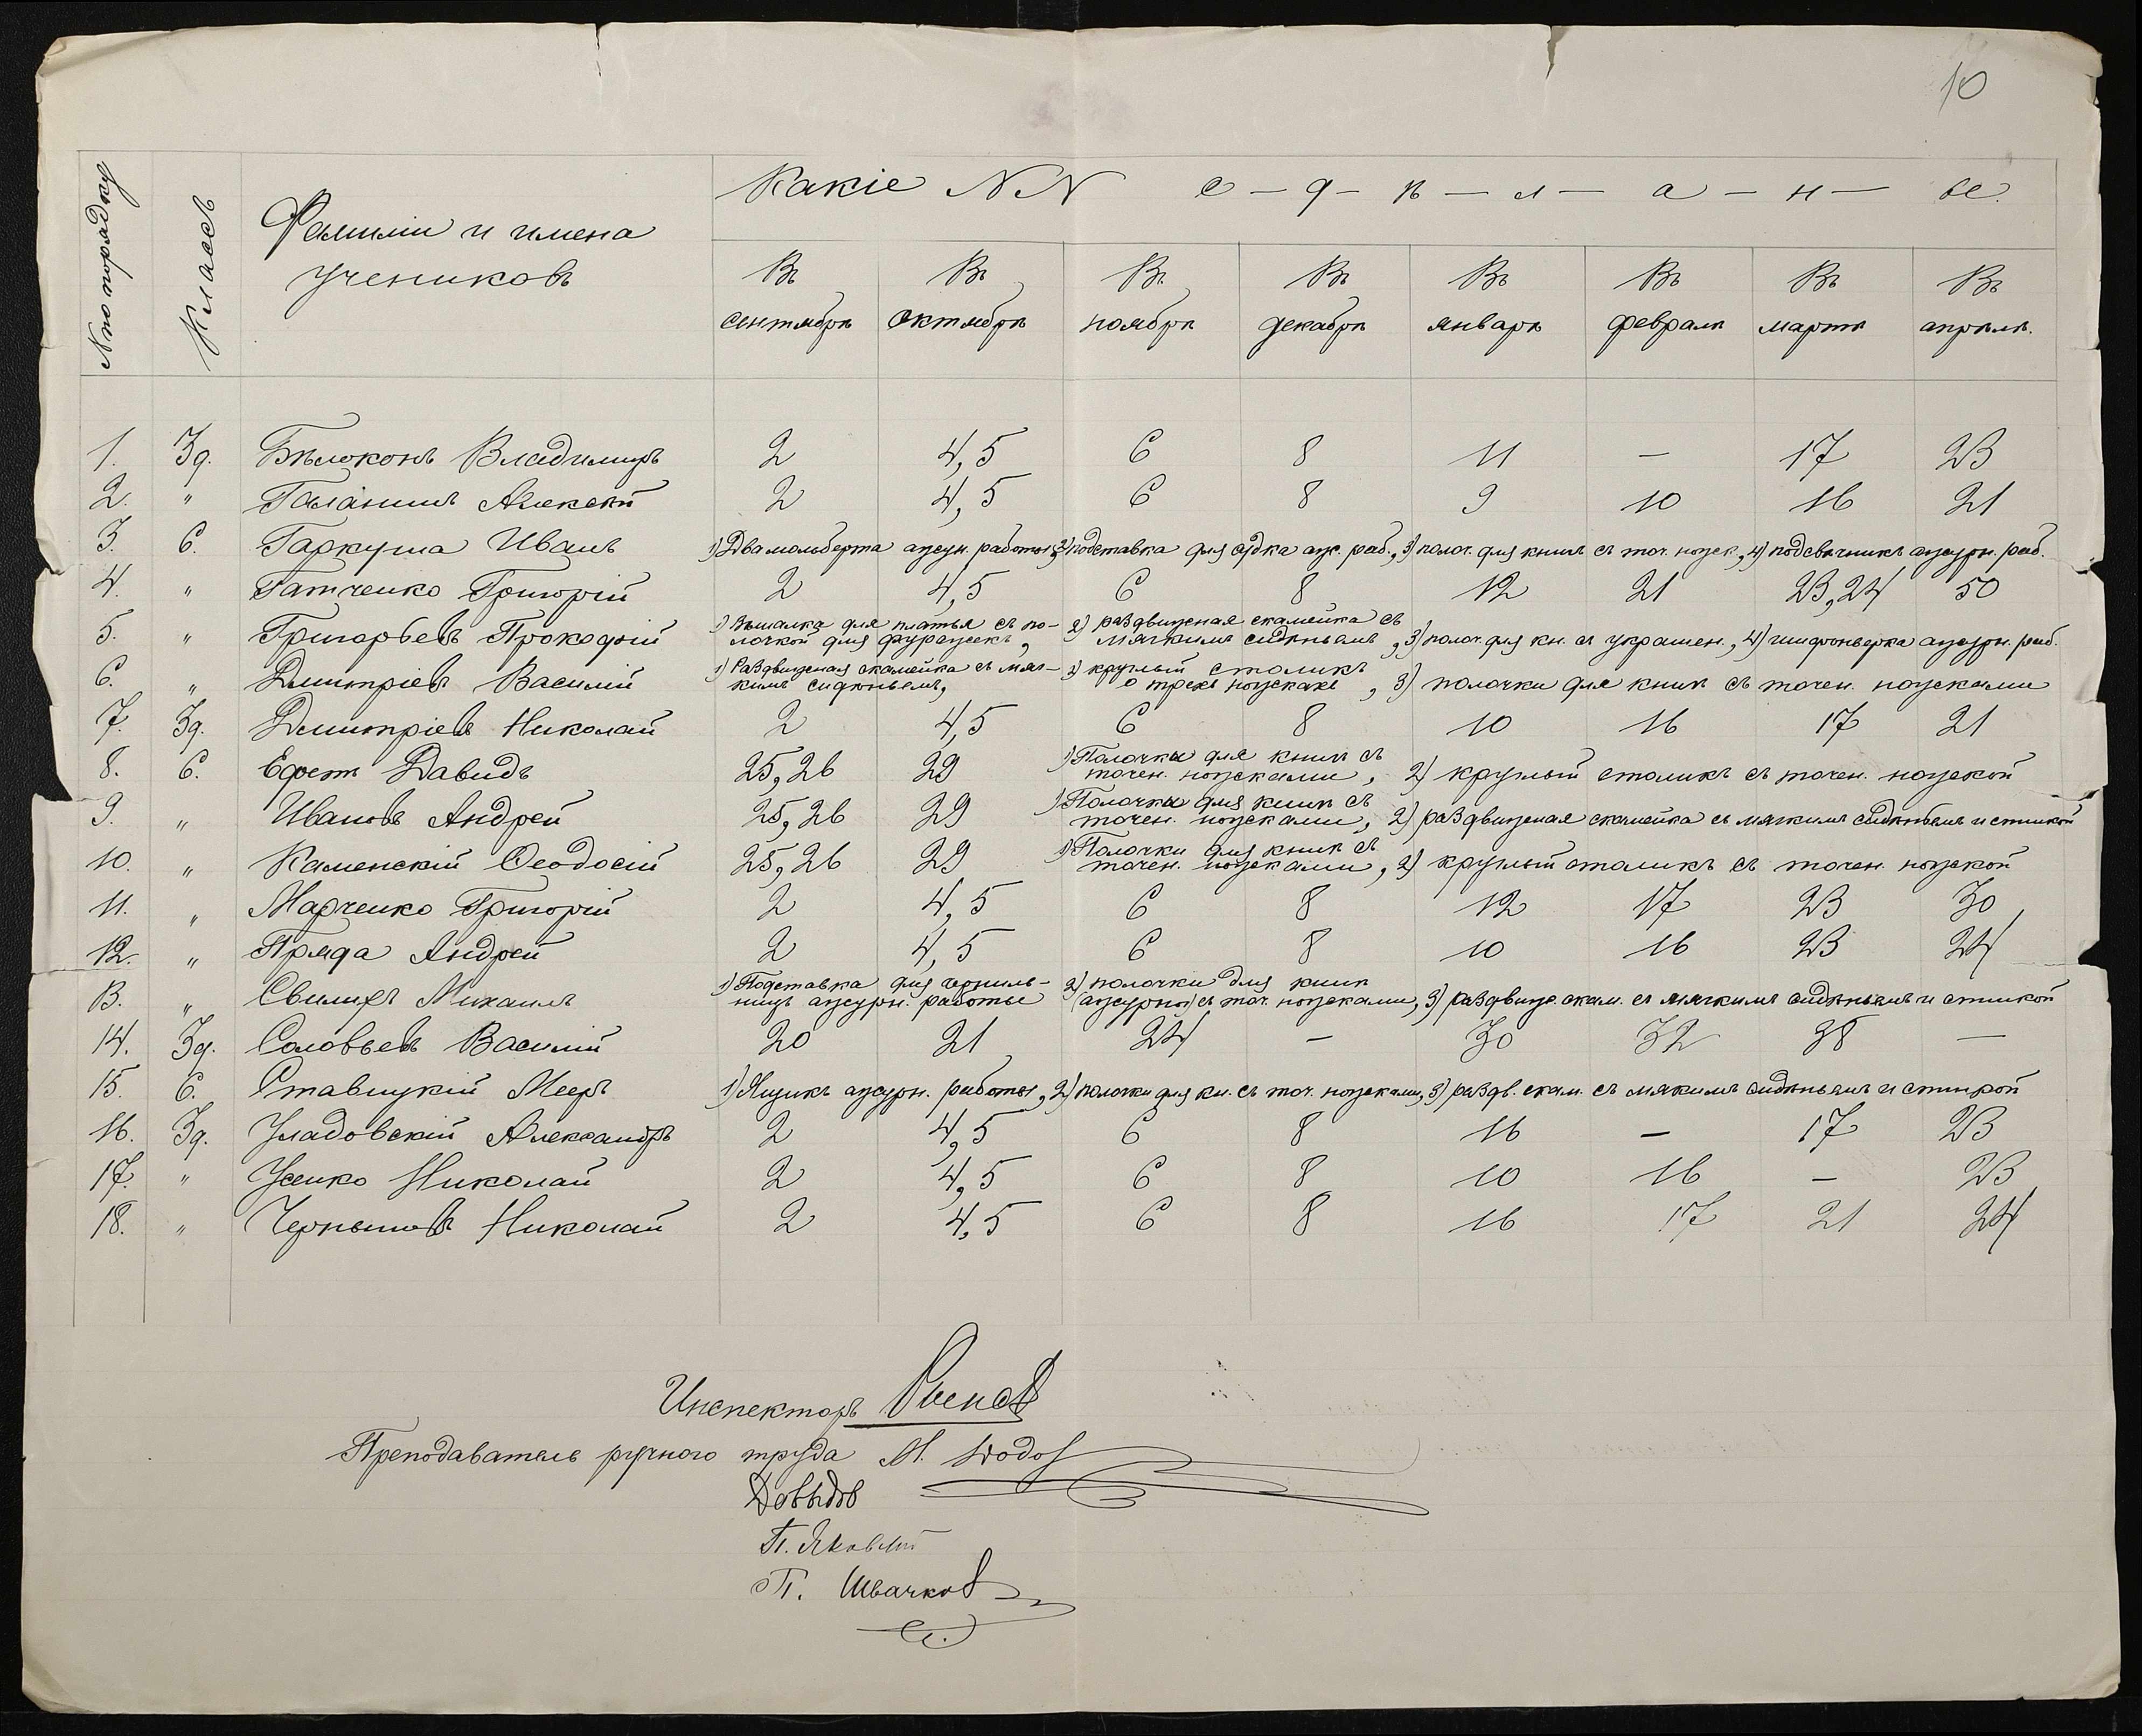 10
№ по порядку
Классъ
Фамиліи и имена
учениковъ
Какіе №№ с – д – ѣ – л – а – н – ы.
Въ Въ Въ Въ Въ Въ Въ Въ
сентябрѣ октябрѣ ноябрѣ декабрѣ январѣ февралѣ мартѣ апрѣлѣ.
1. 3д. Бѣлоконь Владимиръ 2 4,5 6 8 11 — 17 23
2. " Галанинъ Алексѣй 2 4,5 6 8 9 10 16 21
3. 6. Гаркуша Иванъ 1) Два мольберта ажурн. работы, 2) подставка для ажур. раб., 3) полоч. для книгъ съ точ. ножк., 4) подсвѣчникъ ажурн. раб.
4. " Гатченко Григорій 2 4,5 6 8 12 21 23,24 50
5. " Григорьевъ Прокофій 1) Вѣшалка для платья съ по- 2) раздвижная скамейка съ
лочкой для фуражекъ, мягкимъ сидѣньемъ, 3) полоч. для кн. съ украшен., 4) шифоньерка ажурн. раб.
6. " Дмитріевъ Василій 1) Раздвижная скамейка съ мяг- 2) круглый столикъ
кимъ сидѣньемъ, о трехъ ножкахъ, 3) полочки для книгъ съ точен. ножками
7. 3д. Дмитріевъ Николай 2 4,5 6 8 10 16 17 21
8. 6. Ефетъ Давидъ 25,26 29 1) Полочки для книгъ съ
точен. ножками, 2) круглый столикъ съ точен. ножкой
9. " Ивановъ Андрей 25,26 29 1) Полочки для книгъ съ
точен. ножками, 2) раздвижная скамейка съ мягкимъ сидѣньемъ и спинкой
10. " Каменскій Ѳеодосій 25,26 29 1) Полочки для книгъ съ
точен. ножками, 2) круглый столикъ съ точен. ножкой
11. " Марченко Григорій 2 4,5 6 8 12 17 23 30
12. " Пряда Андрей 2 4,5 6 8 10 16 23 24
13. " Свилихъ Михаилъ 1) Подставка для черниль- 2) полочки для книгъ
ницъ ажурн. работы (ажурн.) съ точ. ножками, 3) раздвижн. скам. съ мягкимъ сидѣньемъ и спинкой
14. 3д. Соловьевъ Василій 20 21 24 — 30 32 38 —
15. 6. Ставицкій Мееръ 1) Ящикъ ажурн. работы, 2) полочки для кн. съ точ. ножками, 3) раздв. скам. съ мякимъ сидѣньемъ и спинкой
16. 3д. Уладовскій Александръ 2 4,5 6 8 16 — 17 23
17. " Усенко Николай 2 4,5 6 8 10 16 — 23
18. " Чернышовъ Николай 2 4,5 6 8 16 17 21 24
Инспекторъ
Преподаватель ручного труда М.
Довыдов
П.
П. Швачков